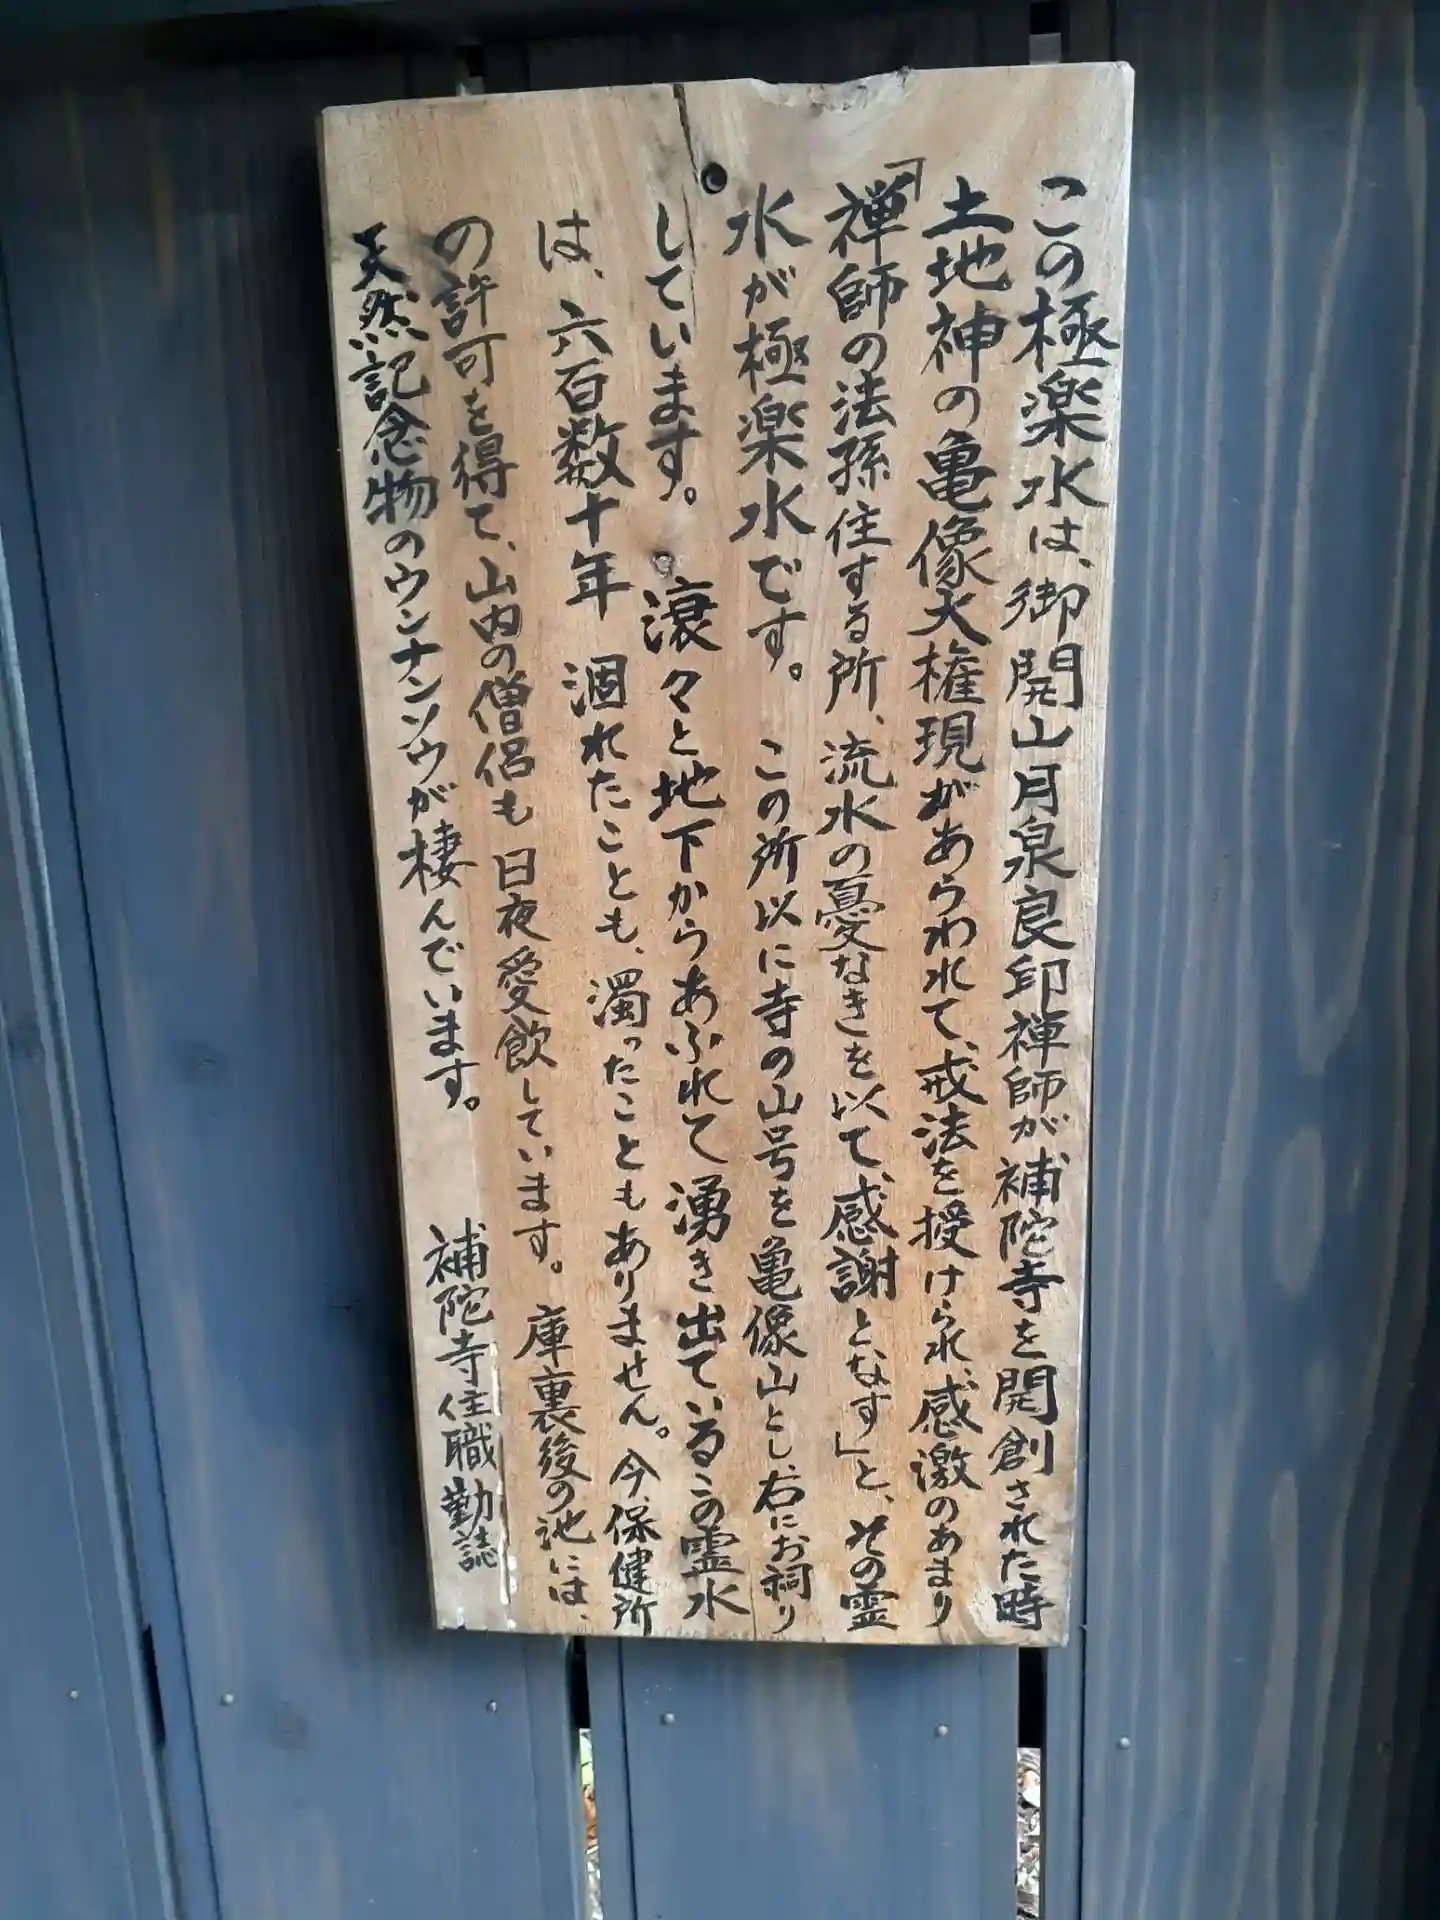 この極楽水は、御開山月泉良印禅師が補陀寺を開創された時
土地神の亀像大権現があらわれて、戒法を授けられ、感激のあまり
「禅師の法孫住する所、流水の憂なきを以て、感謝となす」と、その霊
水が極楽水です。この所以に寺の山号を亀像山とし、右にお祠り
しています。滾々と地下からあふれて湧き出ているこの霊水
は、六百数十年 涸れたことも、濁ったこともありません。今、保健所
の許可を得て、山内の僧侶も日夜愛飲しています。庫裏後の池には、
天然記念物のウンナンソウが棲んでいます。 補陀寺住職勤誌